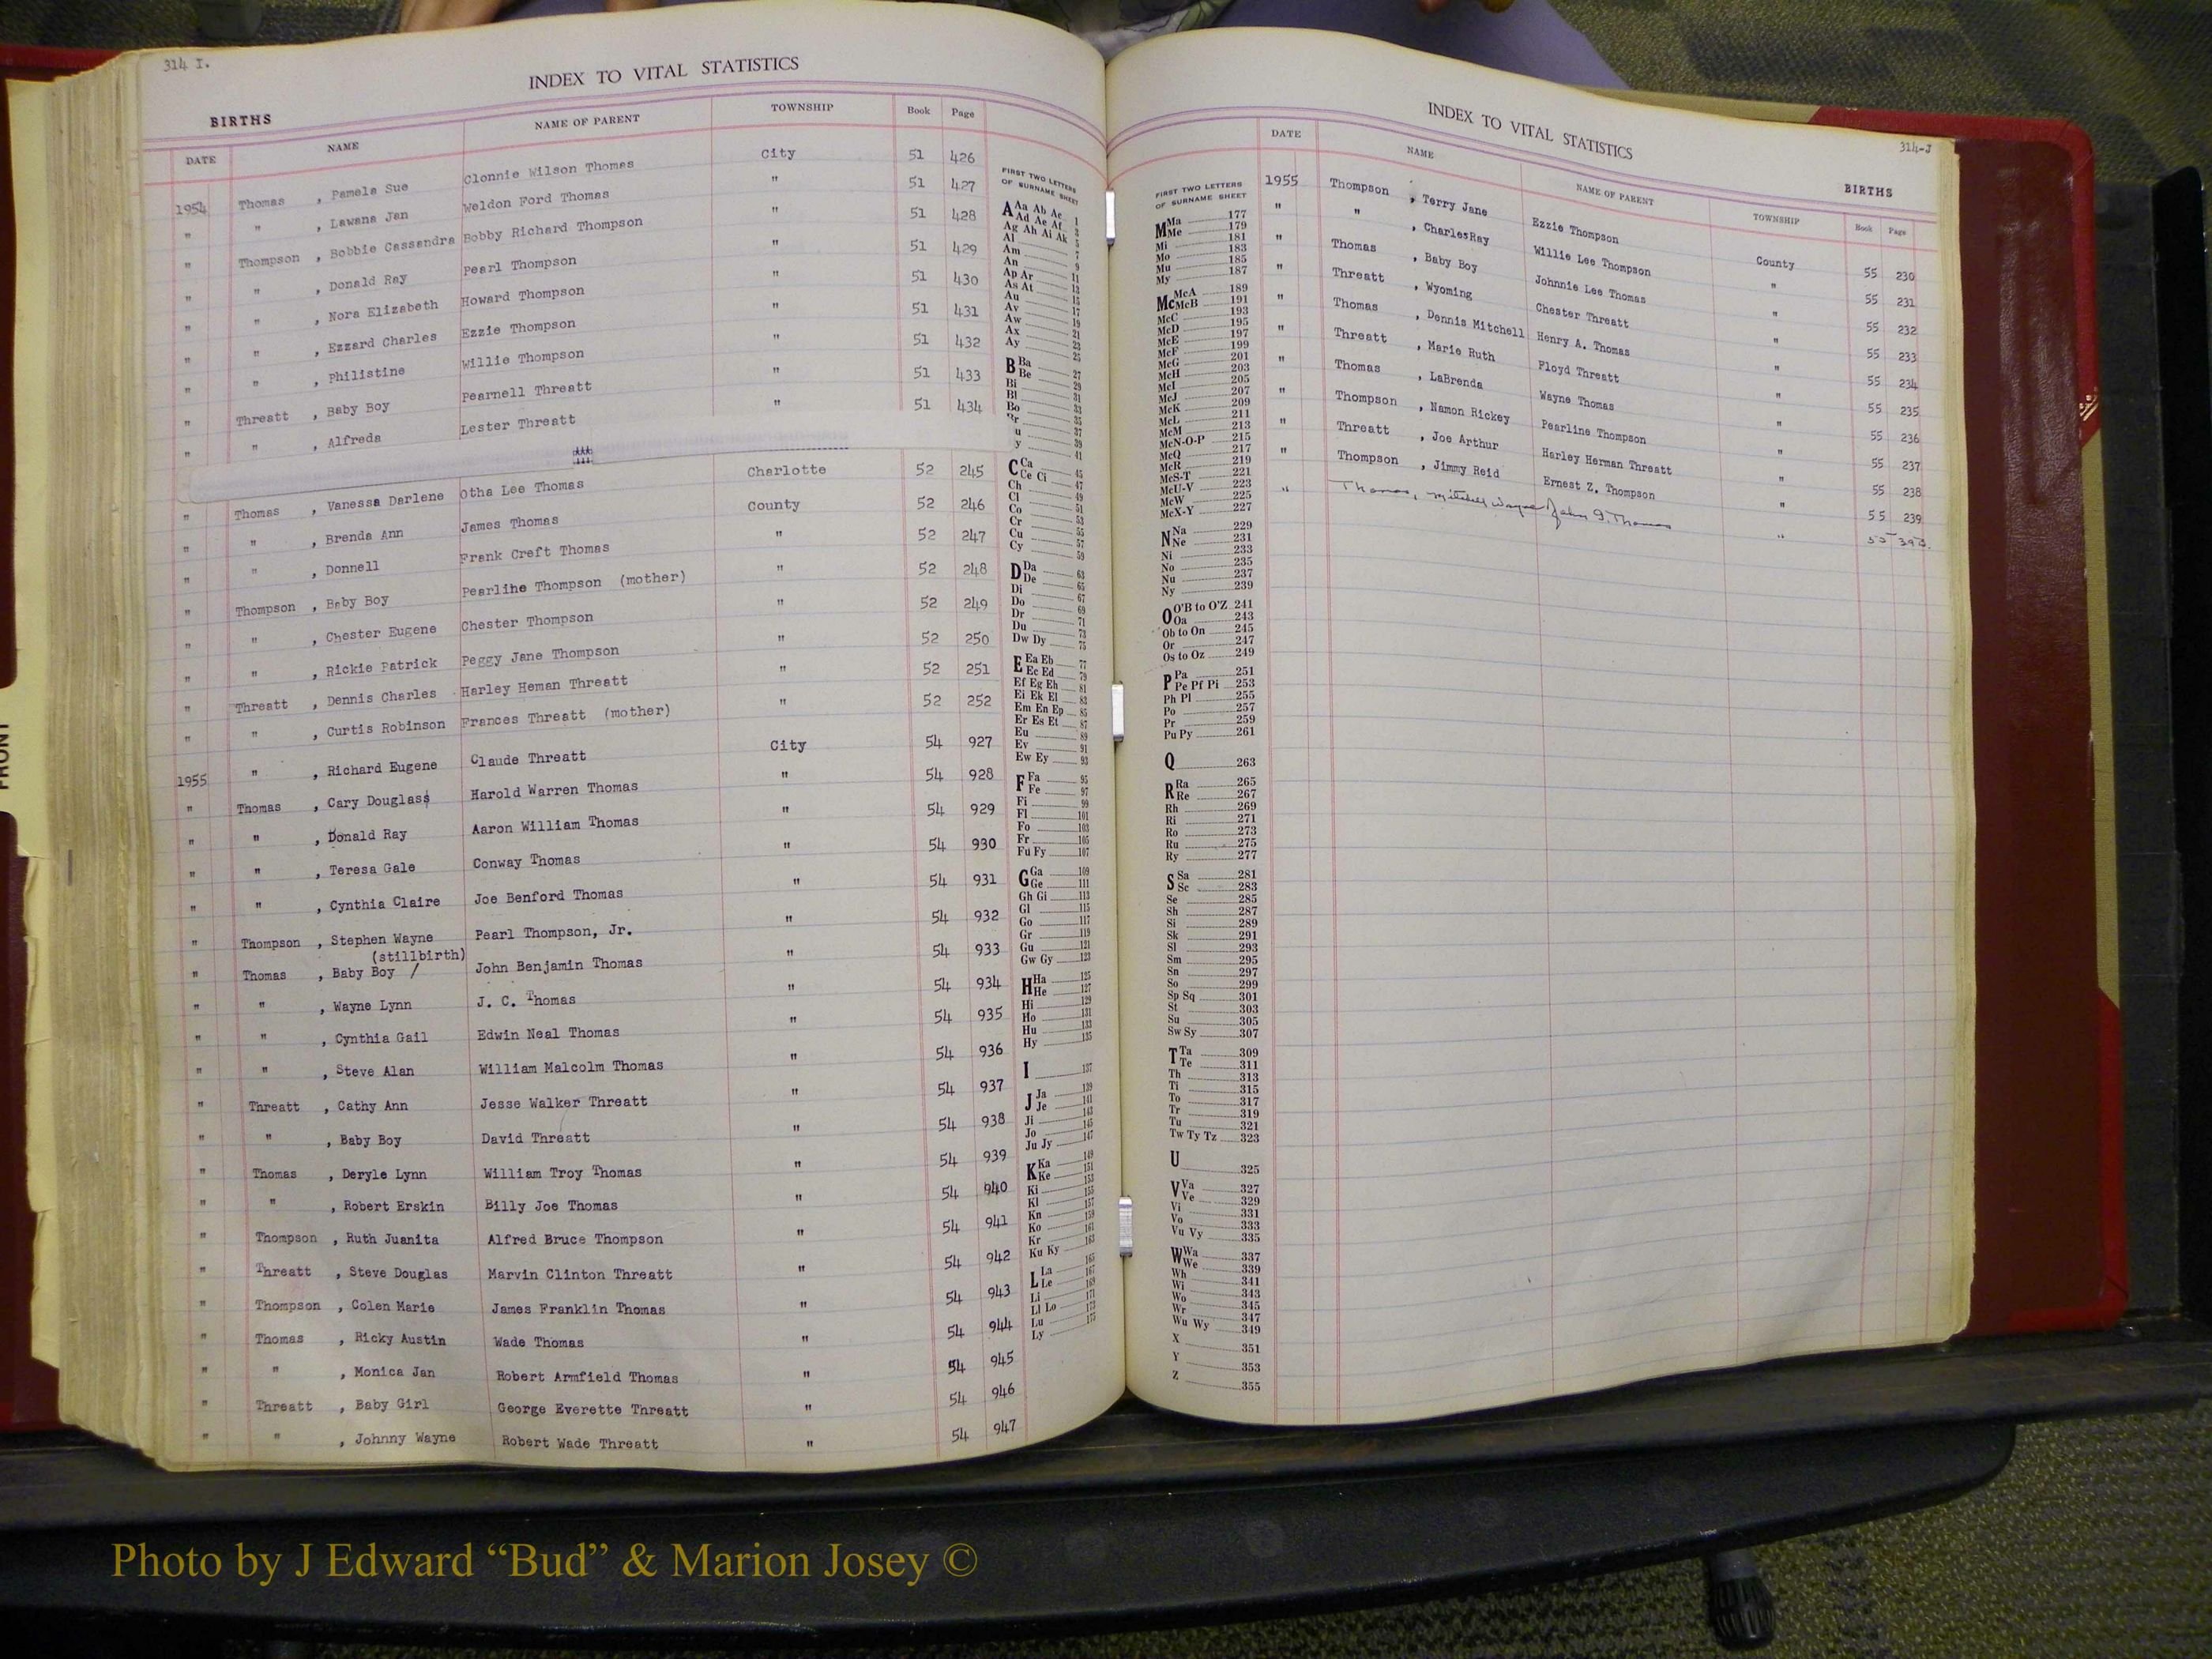 314 I.
INDEX TO VITAL STATISTICS
BIRTHS
DATE NAME NAME OF PARENT TOWNSHIP Book Page
1954 Thomas , Pamela Sue Clonnie Wilson Thomas City 51 426
" " , Lawana Jan Weldon Ford Thomas " 51 427
" Thompson , Bobbie Cassandra Bobby Richard Thompson " 51 428
" " , Donald Ray Pearl Thompson " 51 429
" " , Nora Elizabeth Howard Thompson " 51 430
" " , Ezzard Charles Ezzie Thompson " 51 431
" " , Philistine Willie Thompson " 51 432
" Threatt , Baby Boy Pearnell Threatt " 51 433
" " , Alfreda Lester Threatt " 51 434
" Thomas , Vanessa Darlene Otha Lee Thomas Charlotte 52 245
" " , Brenda Ann James Thomas County 52 246
" " , Donnell Frank Creft Thomas " 52 247
" Thompson , Baby Boy Pearline Thompson (mother) " 52 248
" " , Chester Eugene Chester Thompson " 52 249
" " , Rickie Patrick Peggy Jane Thompson " 52 250
" Threatt , Dennis Charles Harley Heman Threatt " 52 251
" " , Curtis Robinson Frances Threatt (mother) " 52 252
1955 " , Richard Eugene Claude Threatt City 54 927
" Thomas , Cary Douglass Harold Warren Thomas " 54 928
" " , Donald Ray Aaron William Thomas " 54 929
" " , Teresa Gale Conway Thomas " 54 930
" " , Cynthia Claire Joe Benford Thomas " 54 931
" Thompson , Stephen Wayne Pearl Thompson, Jr. " 54 932
(stillbirth)
" Thomas , Baby Boy / John Benjamin Thomas " 54 933
" " , Wayne Lynn J. C. Thomas " 54 934
" " , Cynthia Gail Edwin Neal Thomas " 54 935
" " , Steve Alan William Malcolm Thomas " 54 936
" Threatt , Cathy Ann Jesse Walker Threatt " 54 937
" " , Baby Boy David Threatt " 54 938
" Thomas , Deryle Lynn William Troy Thomas " 54 939
" " , Robert Erskin Billy Joe Thomas " 54 940
" Thompson , Ruth Juanita Alfred Bruce Thompson " 54 941
" Threatt , Steve Douglas Marvin Clinton Threatt " 54 942
" Thompson , Colen Marie James Franklin Thomas " 54 943
" Thomas , Ricky Austin Wade Thomas " 54 944
" " , Monica Jan Robert Armfield Thomas " 54 945
" Threatt , Baby Girl George Everette Threatt " 54 946
" " , Johnny Wayne Robert Wade Threatt " 54 947
FIRST TWO LETTERS
OF SURNAME SHEET
A Aa Ab Ac 1
Ad Ae Af 3
Ag Ah Ai Ak 5
Al 7
Am 9
An 11
Ap Ar 13
As At 15
Au 17
Av 19
Aw 21
Ax 23
Ay 25
B Ba 27
Be 29
Bi 31
Bl 33
Bo 35
Br 37
u 39
y 41
C Ca 45
Ce Ci 47
Ch 49
Cl 51
Co 53
Cr 55
Cu 57
Cy 59
D Da 63
De 65
Di 67
Do 69
Dr 71
Du 73
Dw Dy 75
E Ea Eb 77
Ec Ed 79
Ef Eg Eh 81
Ei Ek El 83
Em En Ep 85
Er Es Et 87
Eu 89
Ev 91
Ew Ey 93
F Fa 95
Fe 97
Fi 99
Fl 101
Fo 103
Fr 105
Fu Fy 107
G Ga 109
Ge 111
Gh Gi 113
Gl 115
Go 117
Gr 119
Gu 121
Gw Gy 123
H Ha 125
He 127
Hi 129
Ho 131
Hu 133
Hy 135
I 137
J Ja 139
Je 141
Ji 143
Jo 145
Ju Jy 147
K Ka 149
Ke 151
Ki 153
Kl 155
Kn 157
Ko 159
Kr 161
Ku Ky 163
L La 165
Le 167
Li 169
Ll Lo 171
Lu 173
Ly 175
314-J
INDEX TO VITAL STATISTICS
BIRTHS
DATE NAME NAME OF PARENT TOWNSHIP Book Page
1955 Thompson , Terry Jane Ezzie Thompson County 55 230
" " , CharlesRay Willie Lee Thompson " 55 231
" Thomas , Baby Boy Johnnie Lee Thomas " 55 232
" Threatt , Wyoming Chester Threatt " 55 233
" Thomas , Dennis Mitchell Henry A. Thomas " 55 234
" Threatt , Marie Ruth Floyd Threatt " 55 235
" Thomas , LaBrenda Wayne Thomas " 55 236
" Thompson , Namon Rickey Pearline Thompson " 55 237
" Threatt , Joe Arthur Harley Herman Threatt " 55 238
" Thompson , Jimmy Reid Ernest Z. Thompson " 55 239
" Thomas, Mitchell Wayne John I. Thomas " 55
FIRST TWO LETTERS
OF SURNAME SHEET
M Ma 177
Me 179
Mi 181
Mo 183
Mu 185
My 187
Mc McA 189
McB 191
McC 193
McD 195
McE 197
McF 199
McG 201
McH 203
McI 205
McJ 207
McK 209
McL 211
McM 213
McN-O-P 215
McQ 217
McR 219
McS-T 221
McU-V 223
McW 225
McX-Y 227
N Na 229
Ne 231
Ni 233
No 235
Nu 237
Ny 239
O O'B to O'Z 241
Oa 243
Ob to On 245
Or 247
Os to Oz 249
P Pa 251
Pe Pf Pi 253
Ph Pl 255
Po 257
Pr 259
Pu Py 261
Q 263
R Ra 265
Re 267
Rh 269
Ri 271
Ro 273
Ru 275
Ry 277
S Sa 281
Sc 283
Se 285
Sh 287
Si 289
Sk 291
Sl 293
Sm 295
Sn 297
So 299
Sp Sq 301
St 303
Su 305
Sw Sy 307
T Ta 309
Te 311
Th 313
Ti 315
To 317
Tr 319
Tu 321
Tw Ty Tz 323
U 325
V Va 327
Ve 329
Vi 331
Vo 333
Vu Vy 335
W Wa 337
We 339
Wh 341
Wi 343
Wo 345
Wr 347
Wu Wy 349
X 351
Y 353
Z 355
FRONT
Photo by J Edward “Bud” & Marion Josey ©